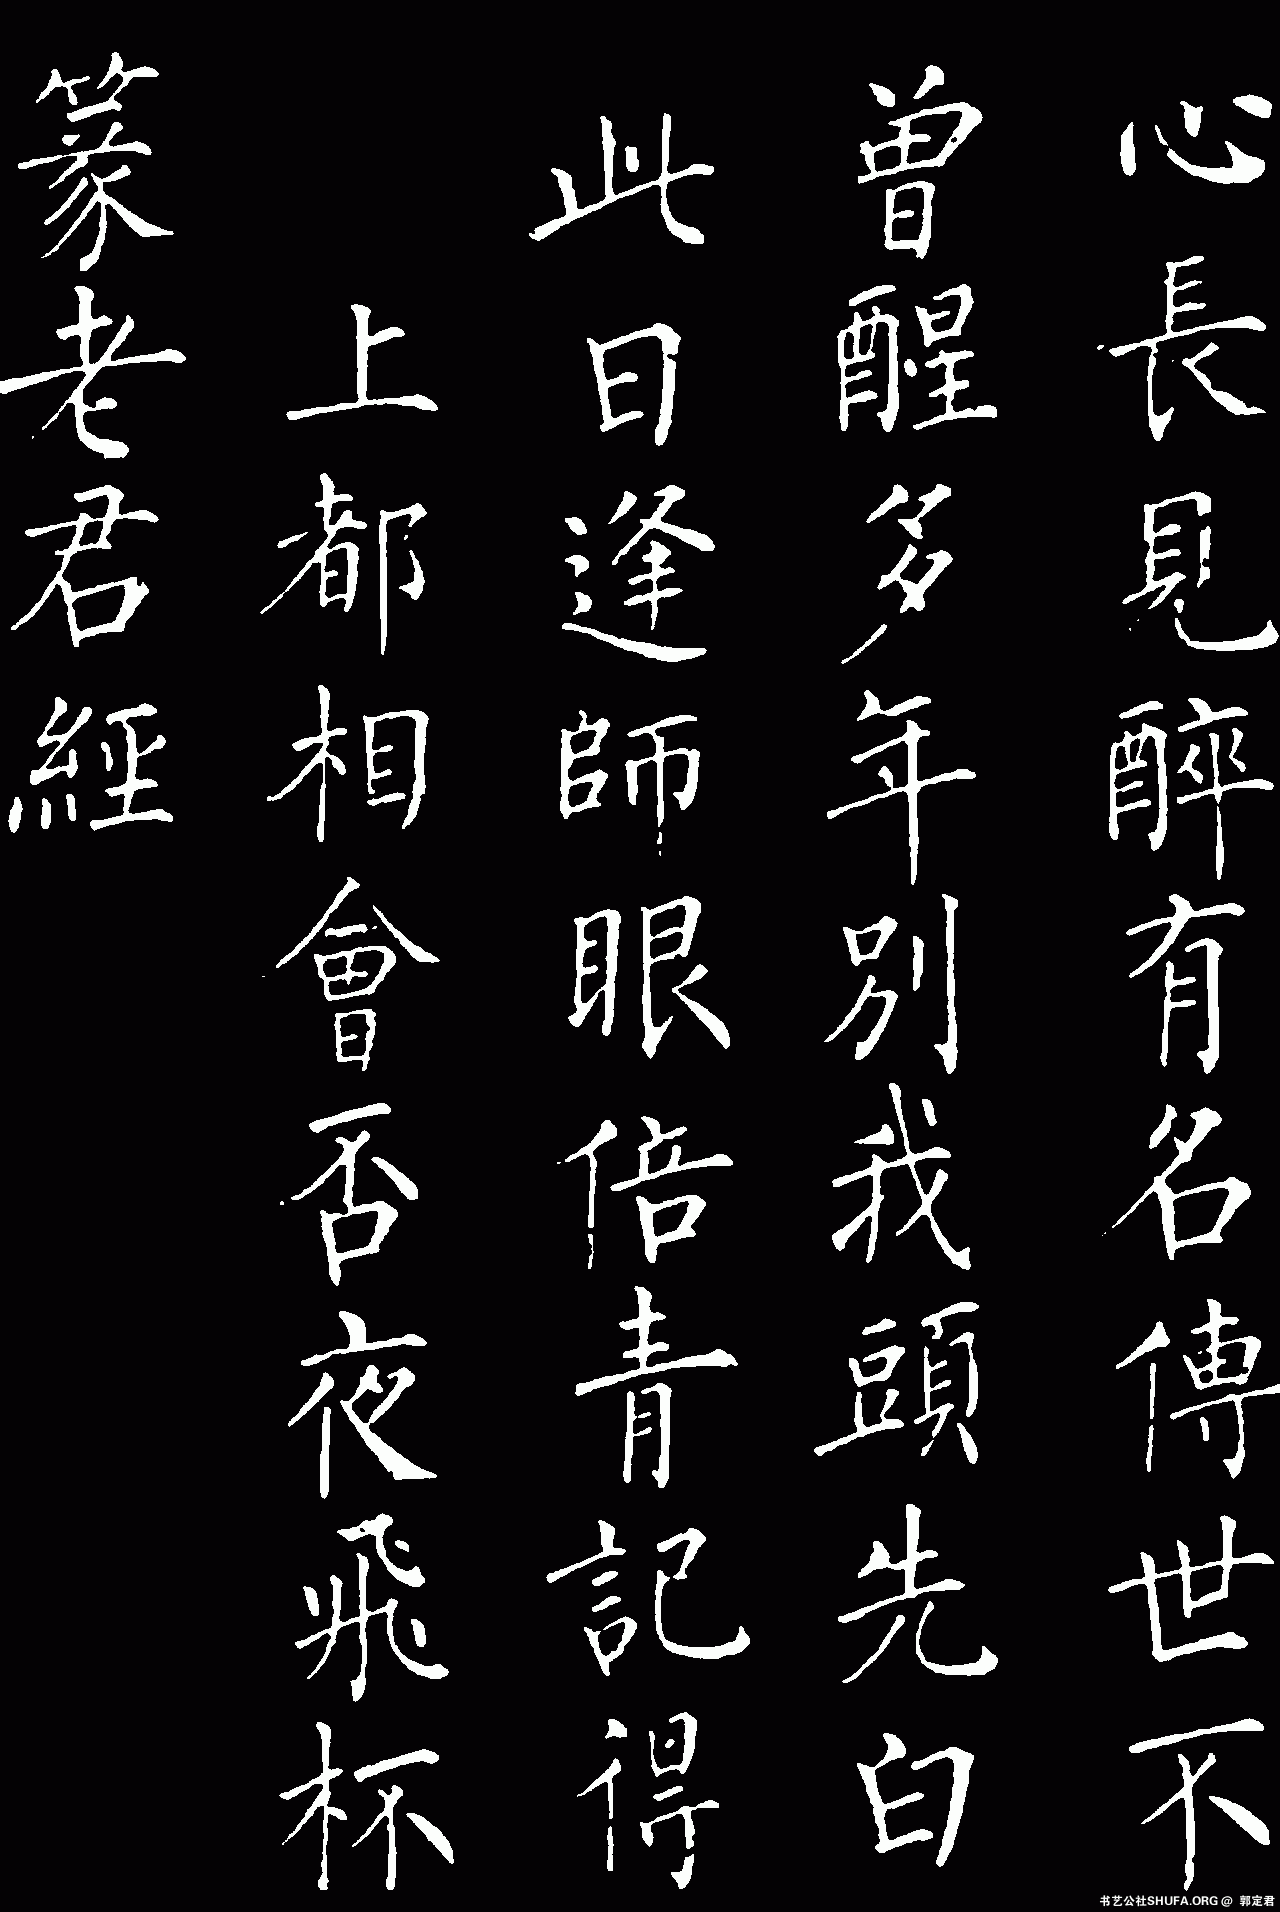 心長見醉有名傳世不
曾醒多年別我頭先白
此日逢師眼倍青記得
上都相會否夜飛杯
篆老君經
书艺公社SHUFA.ORG @ 郭定君